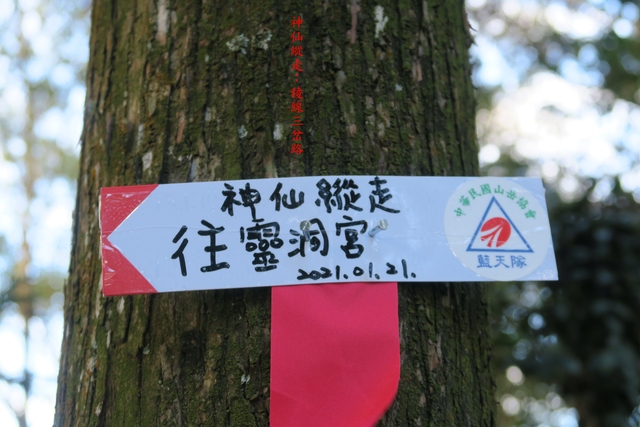 神仙縱走：稜線三岔路
神仙縱走
往靈洞宮
2021.01.21.
中華民國山岳協會
藍天隊